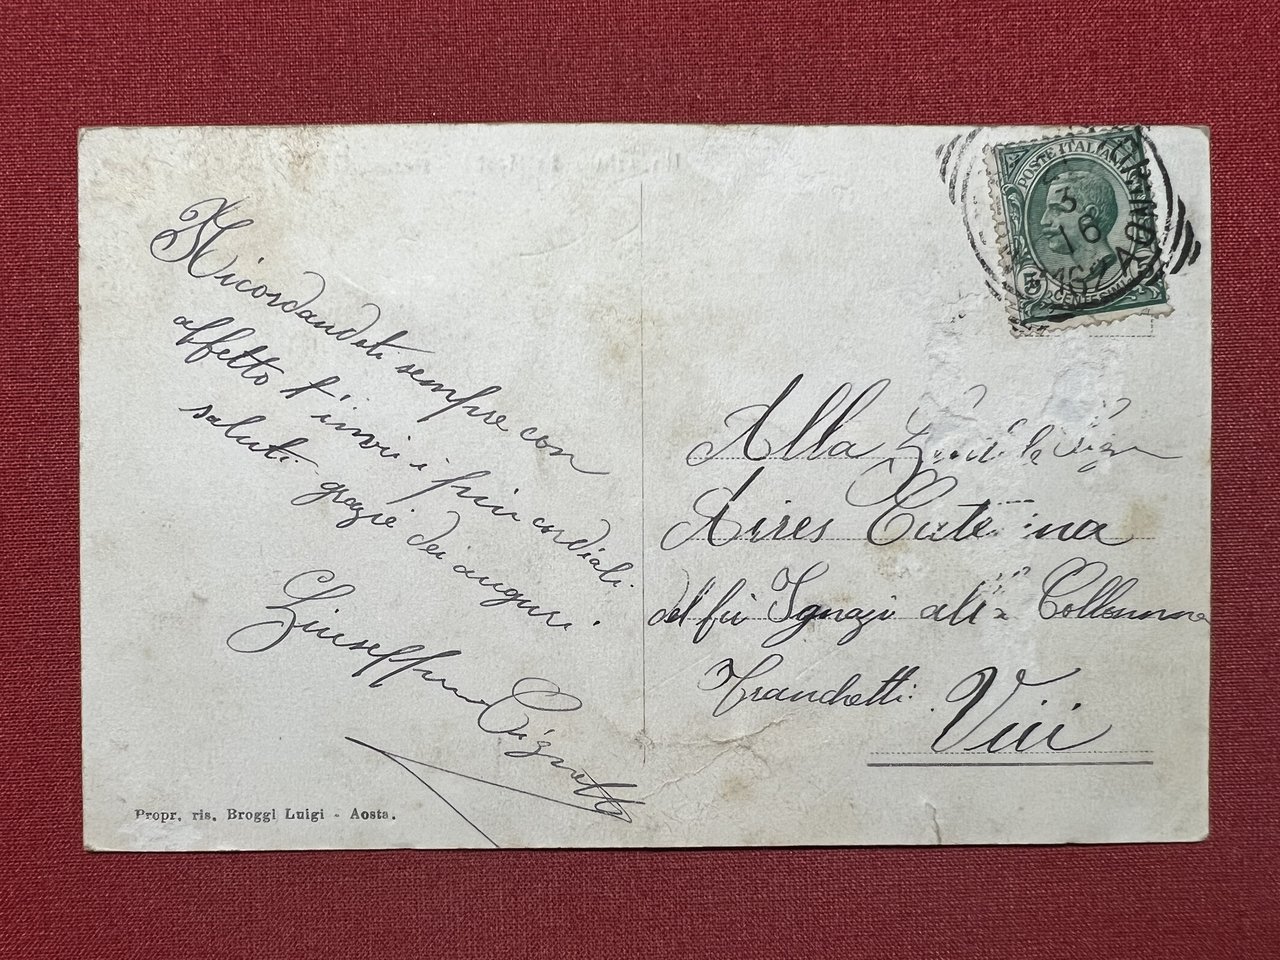 Ricordandoti sempre con
affetto t'invio i più cordiali
saluti grazie dei auguri.
Giuseppina
Propr. ris. Broggi Luigi - Aosta.
POSTE ITALIANE
CENTESIMI
Alla Gentile Sig.na
Aires Caterina
del fù Ignazi alla
Franchetti
Viù